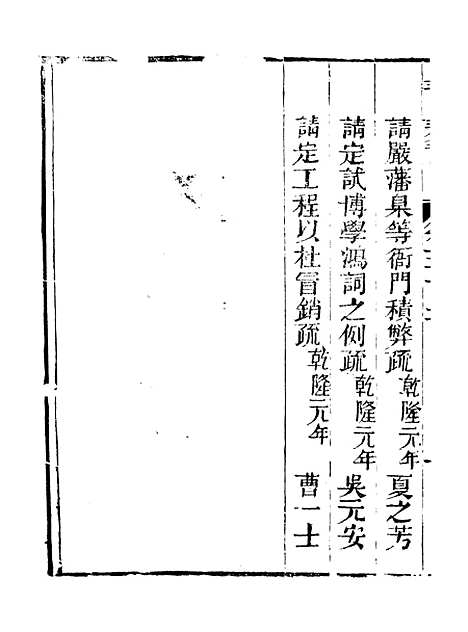 請嚴藩臬等衙門積弊疏 乾隆元年 夏之芳
請定試博學鴻詞之例疏 乾隆元年 吳元安
請定工程以杜冒銷疏 乾隆元年 曹一士